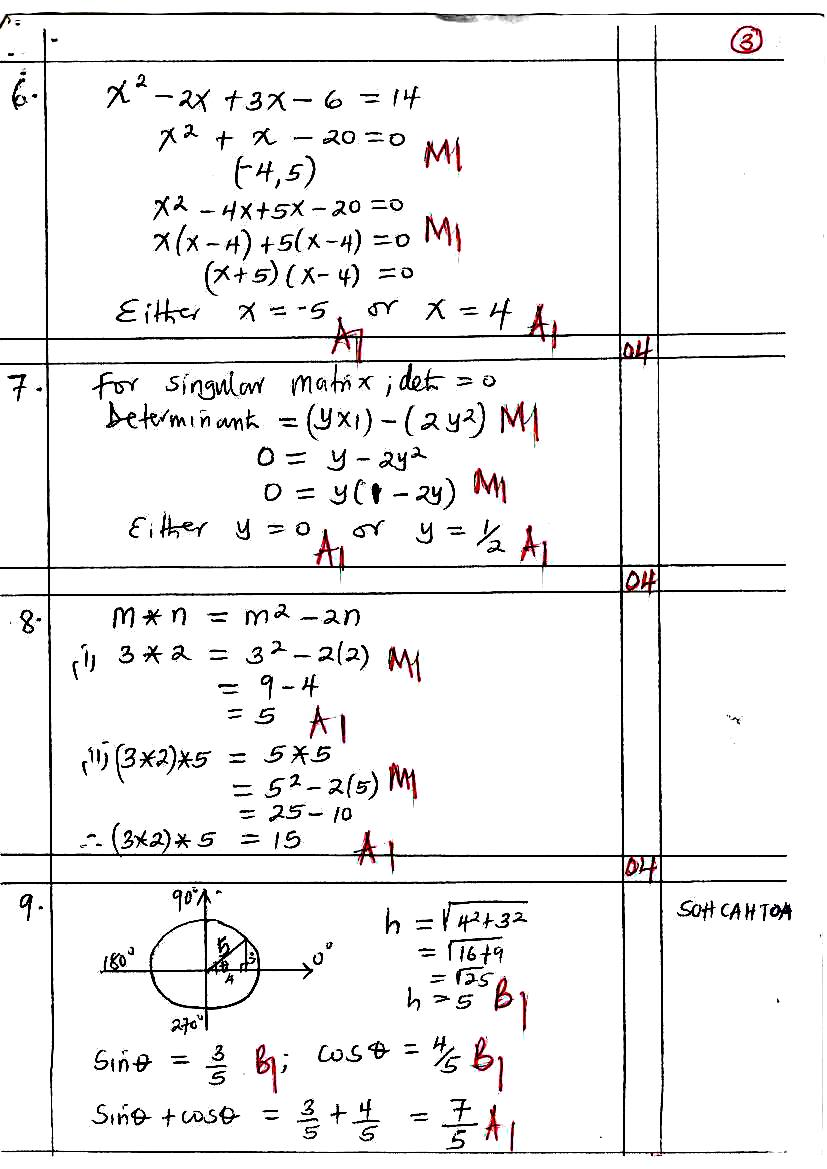 3
6. x² - 2x + 3x - 6 = 14
x² + x - 20 = 0 M1
(-4, 5)
x² - 4x + 5x - 20 = 0
x(x - 4) + 5(x - 4) = 0 M1
(x + 5)(x - 4) = 0
Either x = -5 A1 or x = 4 A1
04
7. For singular matrix ; det = 0
Determinant = (y×1) - (2y²) M1
0 = y - 2y²
0 = y(1 - 2y) M1
Either y = 0 A1 or y = 1/2 A1
04
8. m * n = m² - 2n
(i) 3 * 2 = 3² - 2(2) M1
= 9 - 4
= 5 A1
(ii) (3*2)*5 = 5 * 5
= 5² - 2(5) M1
= 25 - 10
∴ (3*2)*5 = 15 A1
04
9. 90°
180° 5 θ 4 3 0°
270°
h = √4²+3²
= √16+9
= √25
h = 5 B1
SOH CAH TOA
Sinθ = 3/5 B1; cosθ = 4/5 B1
Sinθ + cosθ = 3/5 + 4/5 = 7/5 A1